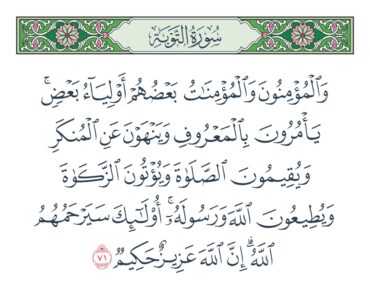 سُورَةُ التَّوْبَةِ
وَٱلْمُؤْمِنُونَ وَٱلْمُؤْمِنَٰتُ بَعْضُهُمْ أَوْلِيَآءُ بَعْضٍۚ
يَأْمُرُونَ بِٱلْمَعْرُوفِ وَيَنْهَوْنَ عَنِ ٱلْمُنكَرِ
وَيُقِيمُونَ ٱلصَّلَوٰةَ وَيُؤْتُونَ ٱلزَّكَوٰةَ
وَيُطِيعُونَ ٱللَّهَ وَرَسُولَهُۥٓۚ أُو۟لَٰٓئِكَ سَيَرْحَمُهُمُ
ٱللَّهُۗ إِنَّ ٱللَّهَ عَزِيزٌ حَكِيمٌ ٧١